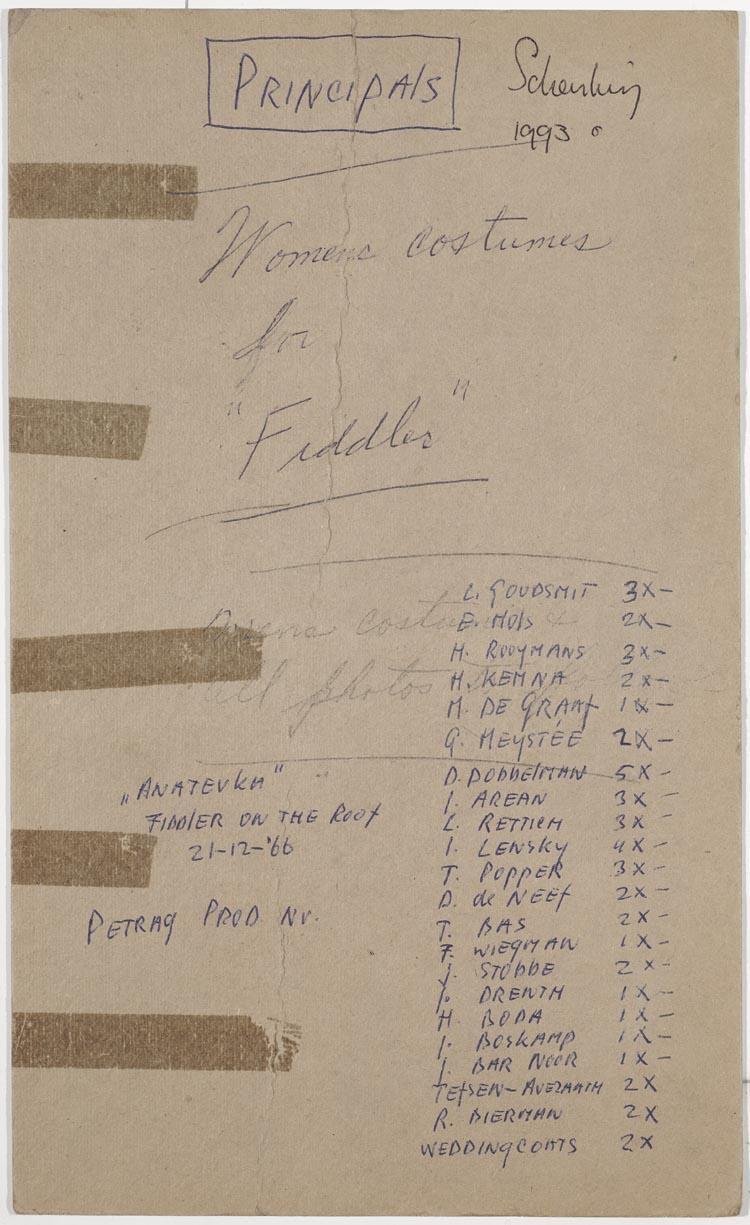 PRINCIPALS
Schenking
1993
Womens costumes
for
"Fiddler"
mens costumes &
all photos
L. GOUDSMIT 3X-
E. MOLS 2X-
H. ROOYMANS 3X-
H. KEMNA 2X-
M. DE GRAAF 1X-
G. MEYSTÉE 2X-
D. DOBBELMAN 5X-
I. AREAN 3X-
L. RETTICH 3X-
I. LENSKY 4X-
T. POPPER 3X-
D. de NEEF 2X-
T. BAS 2X-
F. WIEGMAN 1X-
J. STOBBE 2X-
J. DRENTH 1X-
H. BODA 1X-
J. BOSKAMP 1X-
J. BAR NOOR 1X-
TEFSEN- 2X
R. BIERMAN 2X
WEDDINGCOATS 2X
„ANATEVKA"
FIDDLER ON THE ROOF
21-12-'66
PETRAQ PROD. NV.